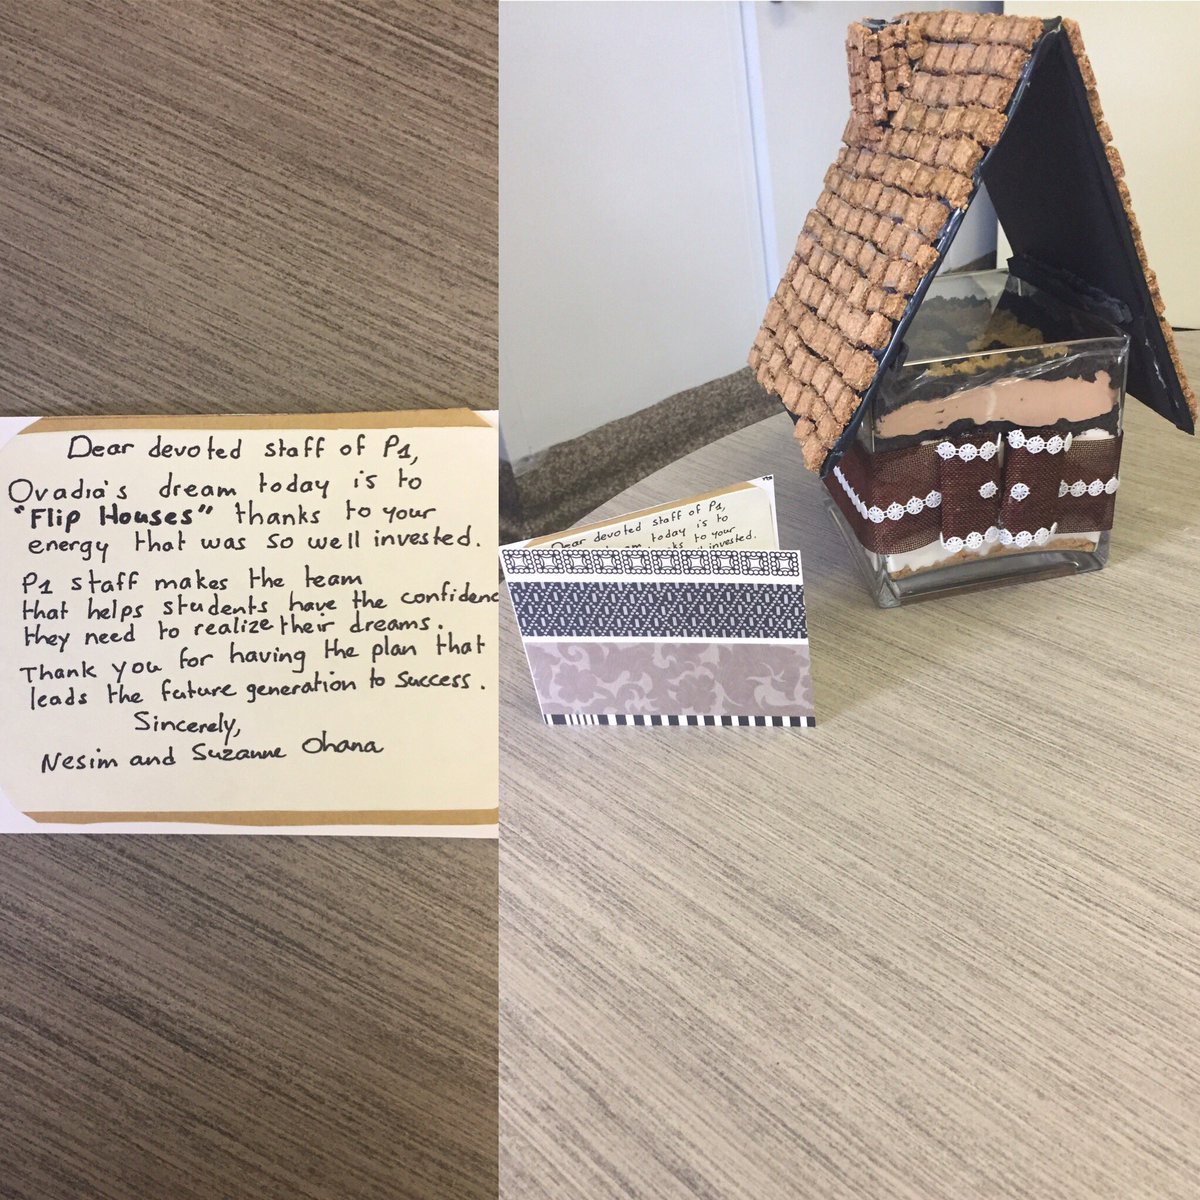 Dear devoted staff of P1,
Ovadia's dream today is to
"Flip Houses" thanks to your
energy that was so well invested.
P1 staff makes the team
that helps students have the confidenc
they need to realize their dreams.
Thank you for having the plan that
leads the future generation to success.
Sincerely,
Nesim and Suzanne Ohana
Dear devoted staff of P1,
dream today is to
thanks to your
invested.